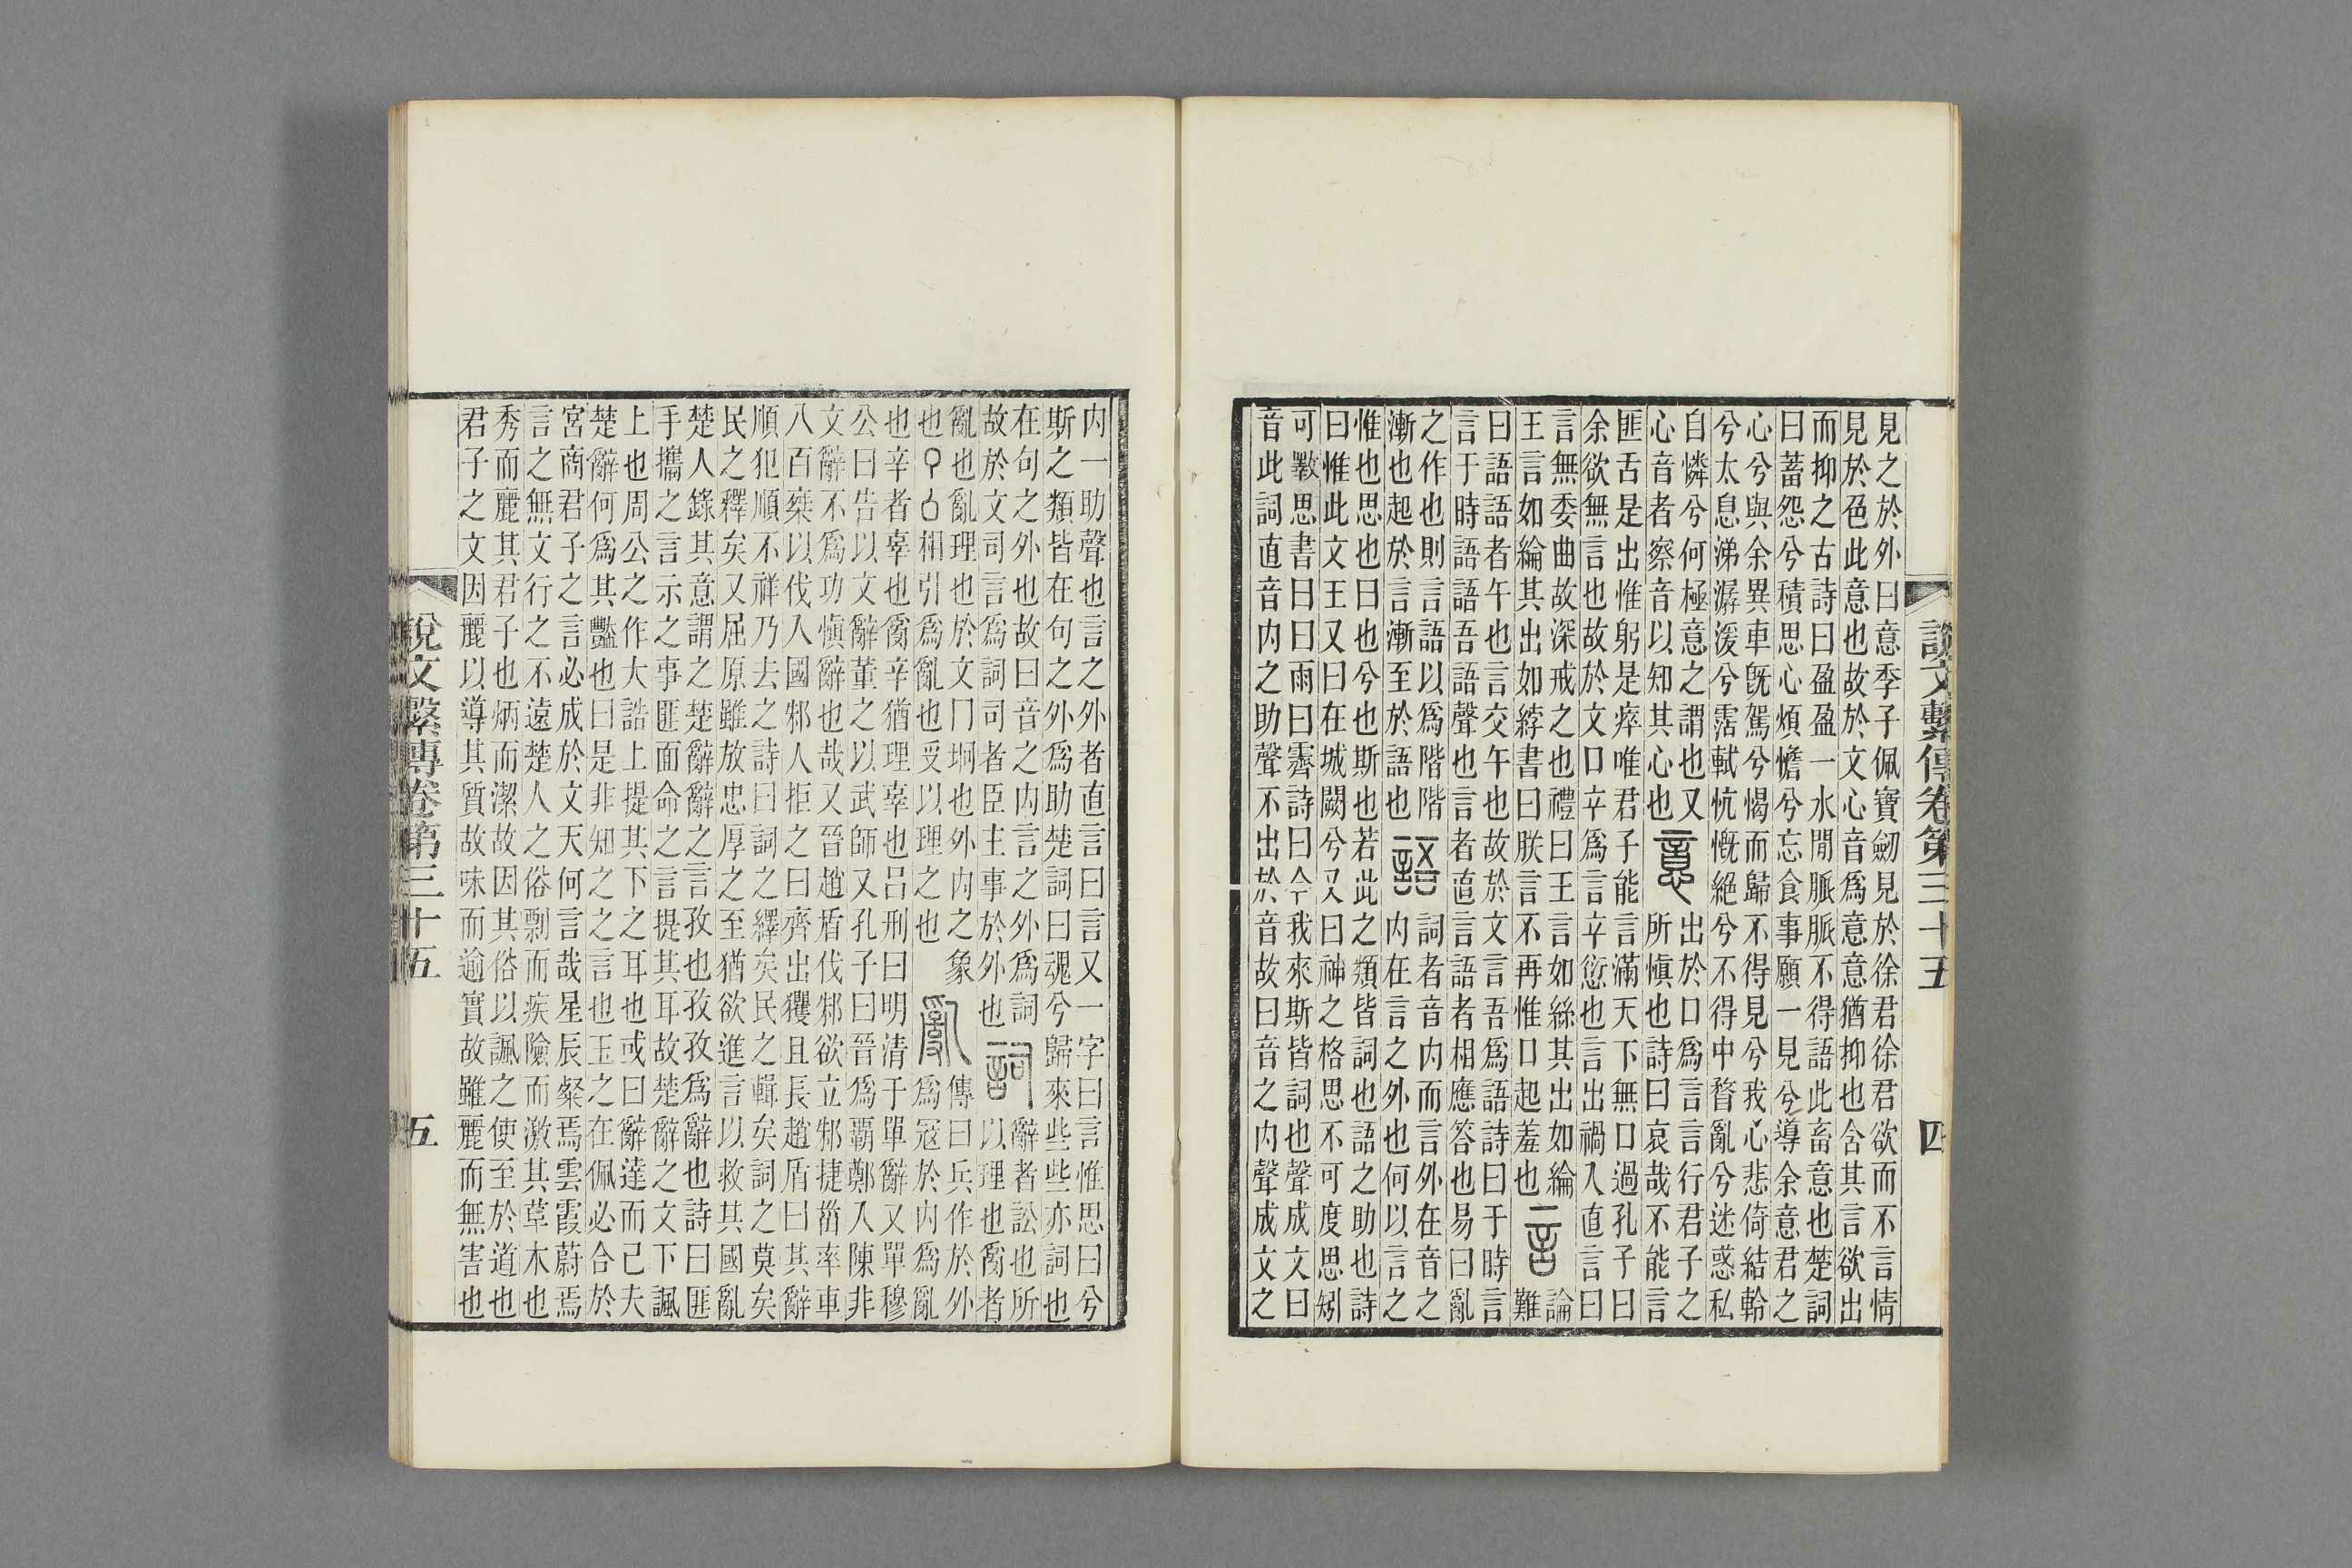 說文繫傳卷第三十五 四
見之於外曰意季子佩寶劒見於徐君徐君欲而不言情
見於色此意也故於文心音爲意意猶抑也含其言欲出
而抑之古詩曰盈盈一水閒脈脈不得語此畜意也楚詞
曰蓄怨兮積思心煩憺兮忘食事願一見兮導余意君之
心兮與余異車旣駕兮朅而歸不得見兮我心悲倚結軨
兮太息涕潺湲兮霑軾忼慨絕兮不得中瞀亂兮迷惑私
自憐兮何極意之謂也又
心音者察音以知其心也
意
出於口爲言言行君子之
所愼也詩曰哀哉不能言
匪舌是出惟躬是瘁唯君子能言滿天下無口過孔子曰
余欲無言也故於文口䇂爲言䇂愆也言出禍入直言曰
言無委曲故深戒之也禮曰王言如絲其出如綸
王言如綸其出如綍書曰朕言不再惟口起羞也
言
論
難
曰語語者午也言交午也故於文言吾爲語詩曰于時言
言于時語語吾語聲也言者直言語者相應答也易曰亂
之作也則言語以爲階階
漸也起於言漸至於語也
語
詞者音内而言外在音之
内在言之外也何以言之
惟也思也曰也兮也斯也若此之類皆詞也語之助也詩
曰惟此文王又曰在城闕兮又曰神之格思不可度思矧
可斁思書曰曰雨曰霽詩曰今我來斯皆詞也聲成文曰
音此詞直音内之助聲不出於音故曰音之内聲成文之
内一助聲也言之外者直言曰言又一字曰言惟思曰兮
斯之類皆在句之外爲助楚詞曰魂兮歸來些些亦詞也
在句之外也故曰音之内言之外爲詞
故於文司言爲詞司者臣主事於外也
詞
辭者訟也所
以理也𤔔者
亂也亂理也於文冂坰也外内之象
也相引爲亂也𠬪以理之也
𤔔
傳曰兵作於外
爲冦於内爲亂
也辛者辠也𤔔辛猶理辠也吕刑曰明清于單辭又單穆
公曰告以文辭董之以武師又孔子曰晉爲覇鄭入陳非
文辭不爲功愼辭也哉又晉趙盾伐邾欲立邾捷菑率車
八百椉以伐入國邾人拒之曰齊出玃且長趙盾曰其辭
順犯順不祥乃去之詩曰詞之繹矣民之輯矣詞之莫矣
民之釋矣又屈原雖放忠厚之至猶欲進言以救其國亂
楚人錄其意謂之楚辭辭之言孜也孜孜爲辭也詩曰匪
手攜之言示之事匪面命之言提其耳故楚辭之文下諷
上也周公之作大誥上提其下之耳也或曰辭達而已夫
楚辭何爲其豔也曰是非知之之言也玉之在佩必合於
宮商君子之言必成於文天何言哉星辰粲焉雲霞蔚焉
言之無文行之不遠楚人之俗剽而疾險而激其草木也
秀而麗其君子也炳而潔故因其俗以諷之使至於道也
君子之文因麗以導其質故味而逾實故雖麗而無害也
說文繫傳卷第三十五 五